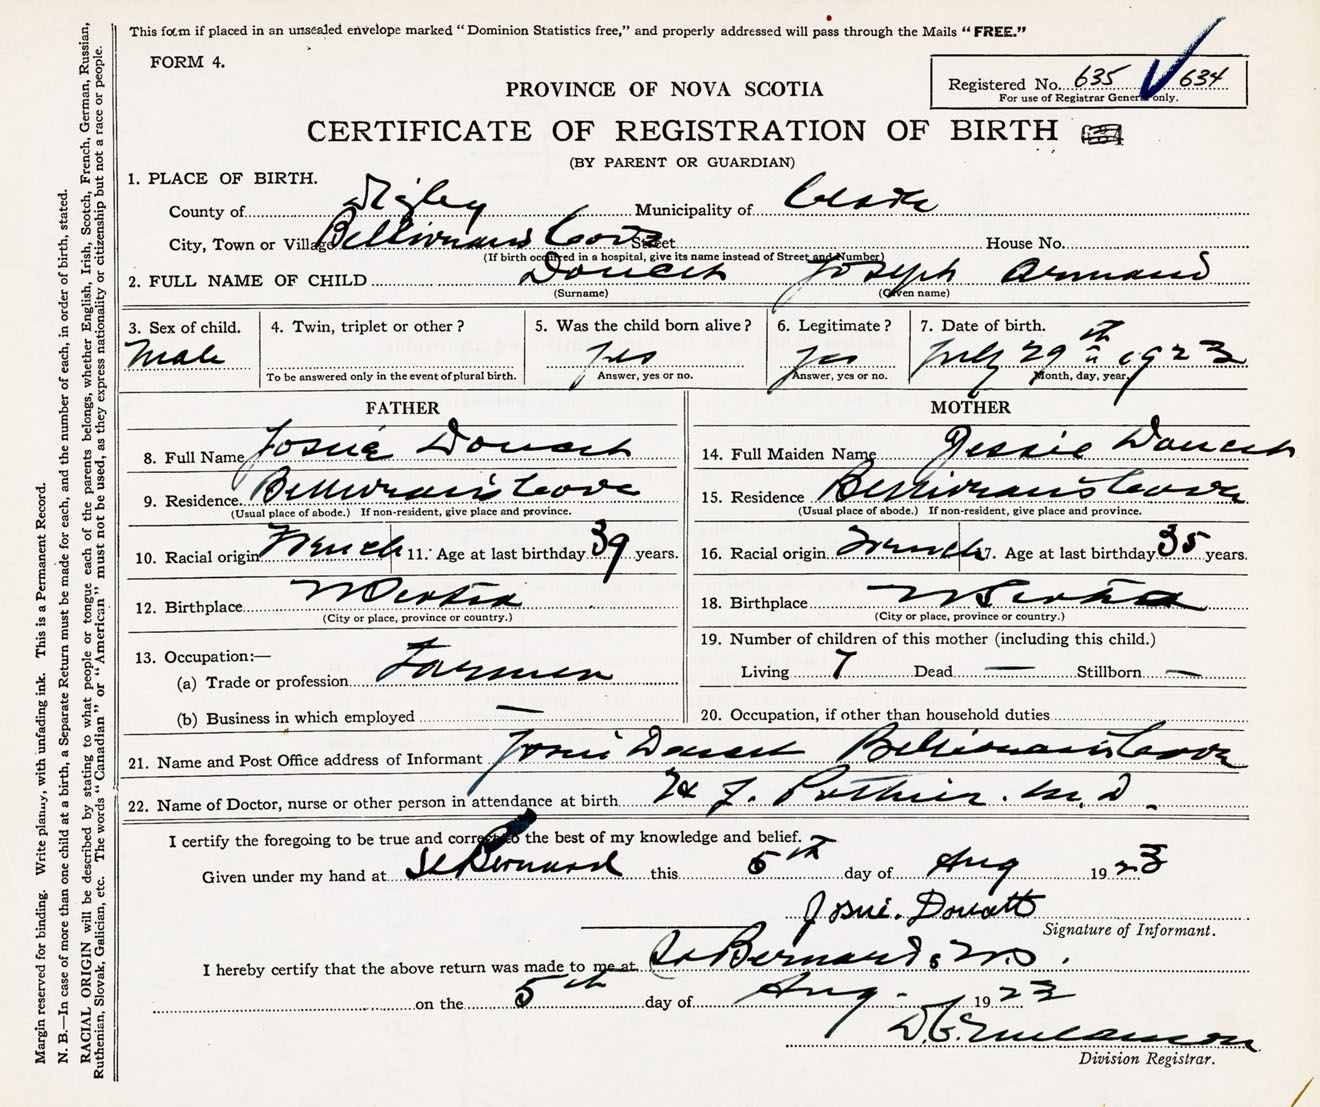 This form if placed in an unsealed envelope marked "Dominion Statistics free," and properly addressed will pass through the Mails "FREE."
FORM 4.
Registered No. 635 634
For use of Registrar General only.
PROVINCE OF NOVA SCOTIA
CERTIFICATE OF REGISTRATION OF BIRTH
(BY PARENT OR GUARDIAN)
1. PLACE OF BIRTH.
County of Digby Municipality of Clare
City, Town or Village Belliveaus Cove Street House No.
(If birth occurred in a hospital, give its name instead of Street and Number)
2. FULL NAME OF CHILD Doucet Joseph Armand
(Surname) (Given name)
3. Sex of child. 4. Twin, triplet or other? 5. Was the child born alive? 6. Legitimate? 7. Date of birth.
Male yes yes July 29th 1923
To be answered only in the event of plural birth. Answer, yes or no. Answer, yes or no. Month, day, year.
FATHER MOTHER
8. Full Name Josué Doucet 14. Full Maiden Name Jessie Doucet
9. Residence Belliveau's Cove 15. Residence Belliveau's Cove
(Usual place of abode.) If non-resident, give place and province. (Usual place of abode.) If non-resident, give place and province.
10. Racial origin French 11. Age at last birthday 39 years. 16. Racial origin French 17. Age at last birthday 35 years.
12. Birthplace N Scotia 18. Birthplace N Scotia
(City or place, province or country.) (City or place, province or country.)
13. Occupation:— 19. Number of children of this mother (including this child.)
(a) Trade or profession Farmer Living 7 Dead — Stillborn —
(b) Business in which employed — 20. Occupation, if other than household duties
21. Name and Post Office address of Informant Josué Doucet Belliveau's Cove
22. Name of Doctor, nurse or other person in attendance at birth J. Pothier. M.D.
I certify the foregoing to be true and correct to the best of my knowledge and belief.
Given under my hand at St Bernard this 5th day of Aug 1923
Josué. Doucett
Signature of Informant.
I hereby certify that the above return was made to me at St Bernard, N.S.
on the 5th day of Aug. 1923
D.G.
Division Registrar.
Margin reserved for binding. Write plainly, with unfading ink. This is a Permanent Record.
N. B.—In case of more than one child at a birth, a Separate Return must be made for each, and the number of each, in order of birth, stated.
RACIAL ORIGIN will be described by stating to what people or tongue each of the parents belongs, whether English, Irish, Scotch, French, German, Russian,
Ruthenian, Slovak, Galician, etc. The words "Canadian" or "American" must not be used, as they express nationality or citizenship but not a race or people.